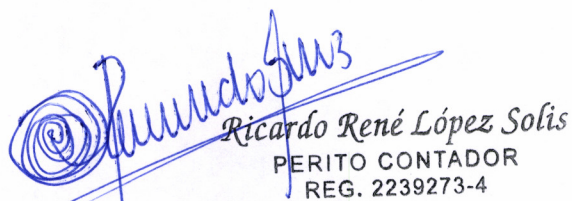 Ricardo René López Solis
PERITO CONTADOR
REG. 2239273-4